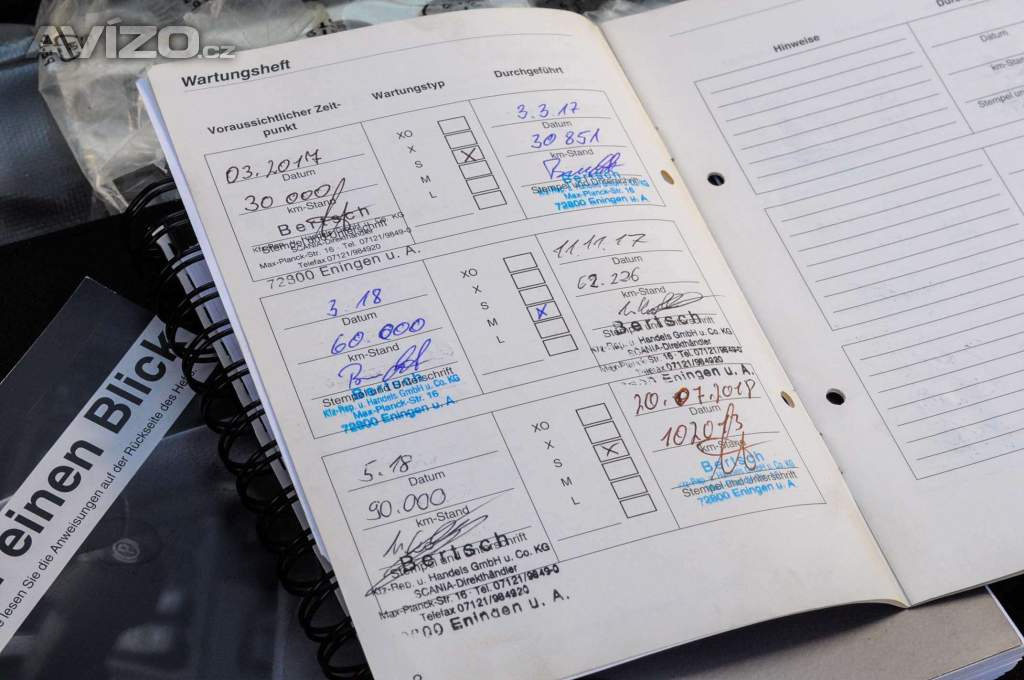 AVIZO.cz
Wartungsheft
Voraussichtlicher Zeit-
punkt
Wartungstyp
Durchgeführt
03.2017
Datum
30 000
km-Stand
Bertsch
Kfz-Rep. u. Handels GmbH u. Co. KG
Stempel und Unterschrift
SCANIA-Direkthändler
Max-Planck-Str. 16 · Tel. 07121/9849-0
Telefax 07121/984920
72800 Eningen u. A.
XO
X
S
M
L
X
3.3.17
Datum
30 851
km-Stand
Bertsch
Stempel und Unterschrift
Max-Planck-Str. 16
72800 Eningen u. A.
3.18
Datum
60.000
km-Stand
Bertsch
Stempel und Unterschrift
Kfz-Rep. u. Handels GmbH u. Co. KG
Max-Planck-Str. 16
72800 Eningen u. A.
XO
X
S
M
L
X
11.11.17
62.226
km-Stand
Bertsch
Stempel und Unterschrift
Kfz-Rep. u. Handels GmbH u. Co. KG
SCANIA-Direkthändler
Max-Planck-Str. 16 · Tel. 07121/9849-0
Telefax 07121/984920
72800 Eningen u. A.
5.18
Datum
90.000
km-Stand
Bertsch
Stempel und Unterschrift
Kfz-Rep. u. Handels GmbH u. Co. KG
SCANIA-Direkthändler
Max-Planck-Str. 16 · Tel. 07121/9849-0
Telefax 07121/984920
Eningen u. A.
XO
X
S
M
L
X
20.07.2018
Datum
km-Stand
Bertsch
Stempel und Unterschrift
72800 Eningen u. A.
Hinweise
Datum
km-Stand
Stempel
einen Blick
lesen Sie die Anweisungen auf der Rückseite des